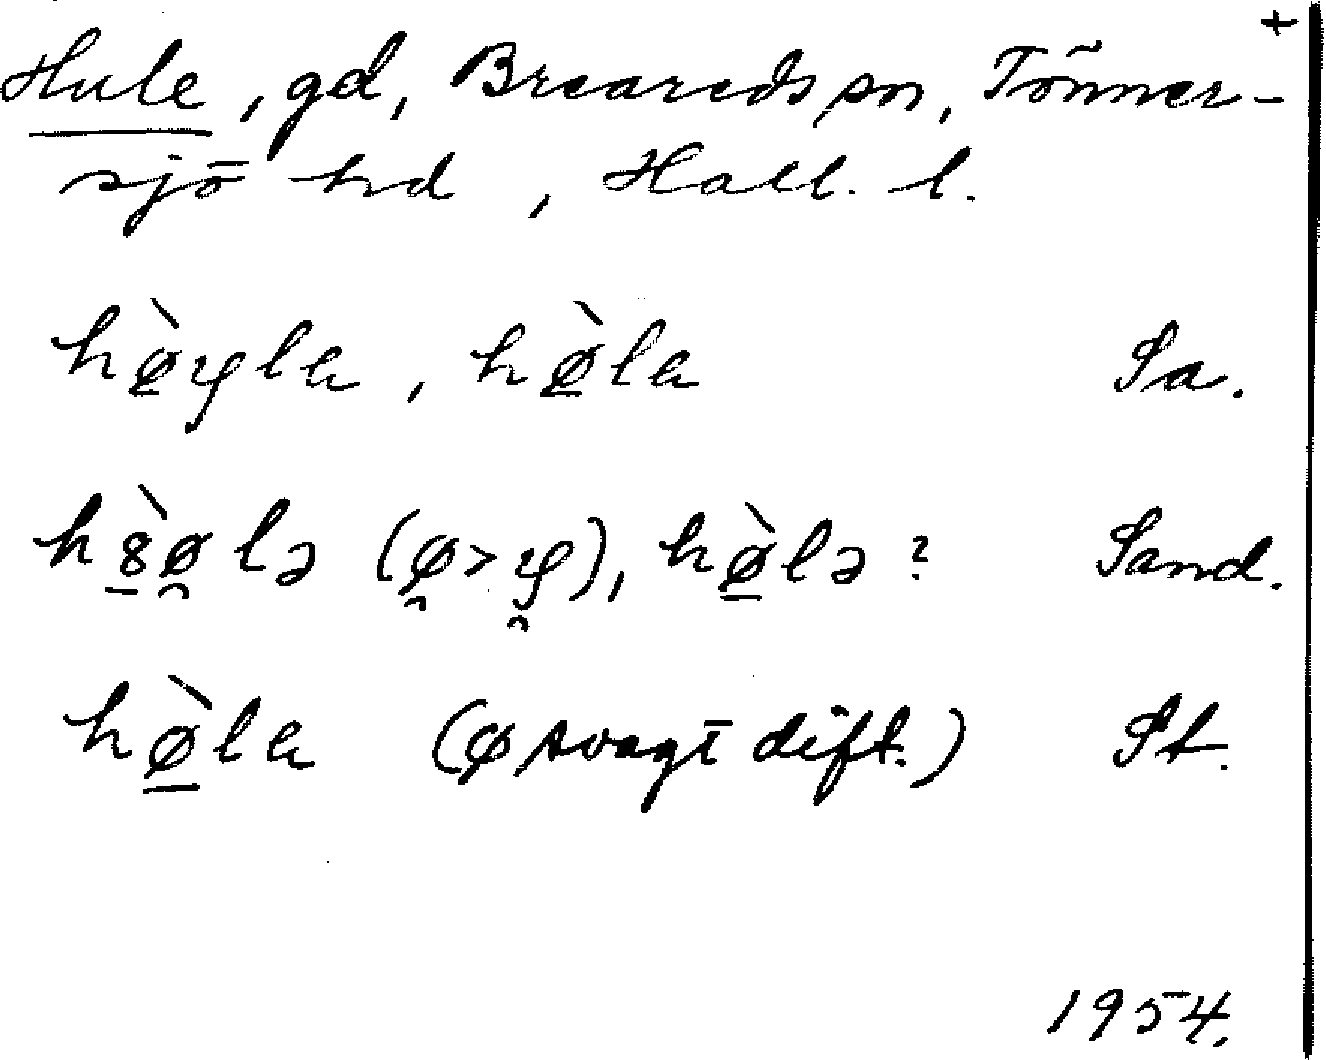 +
Hule, gd, Breareds sn, Tönner-
sjö hd, Hall. l.
hø̠̀yla, hø̠̀la Sa.
h8̠̀ø̯lə (ø̯>y̯), hø̠̀lə? Sand.
hø̠̀la (ø svagt dift.) St.
1954.